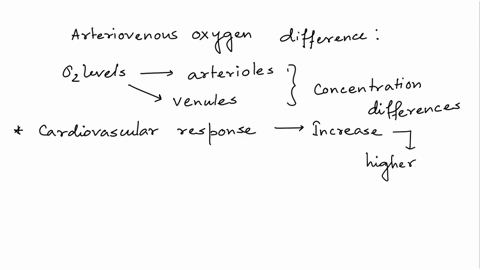 Arteriovenous oxygen difference:
O2 levels → arterioles
venules
Concentration differences
* Cardiovascular response → Increase
higher